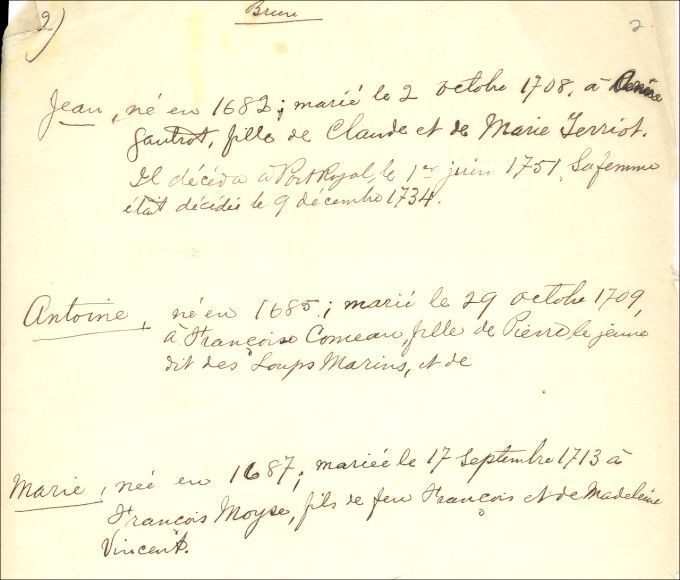 2)
Brun
2
Jean, né en 1682; marié le 2 octobre 1708, à
Gautrot, fille de Claude et de Marie Terriot.
Il décéda à Port Royal, le 1er juin 1751, Sa femme
était décédée le 9 décembre 1734.
Antoine, né en 1685; marié le 29 octobre 1709,
à Françoise Comeau, fille de Pierre le jeune
dit des Loups Marins, et de
Marie, née en 1687; mariée le 17 Septembre 1713 à
François Moyse, fils de feu François et de Madeleine
Vincent.